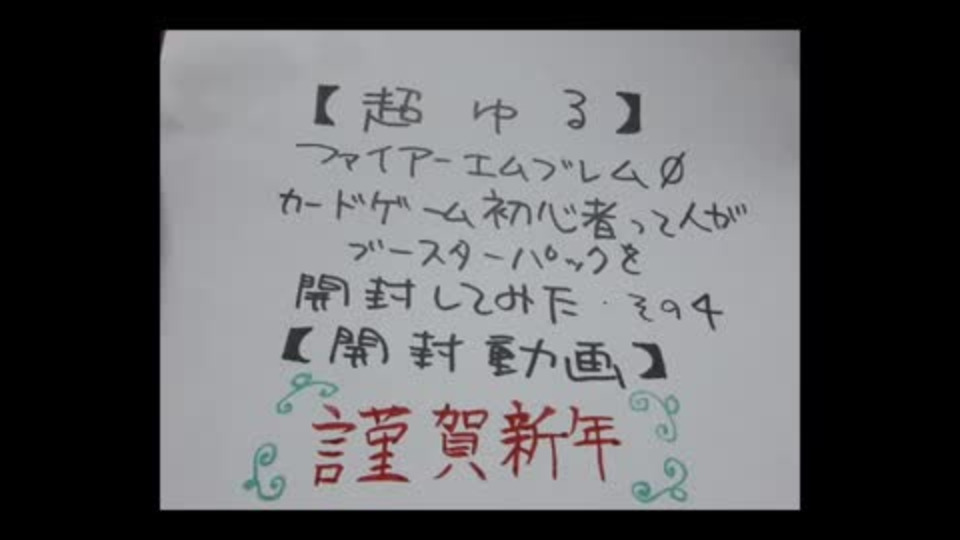 【超ゆる】
ファイアーエムブレム0
カードゲーム初心者って人が
ブースターパックを
開封してみた・その4
【開封動画】
謹賀新年